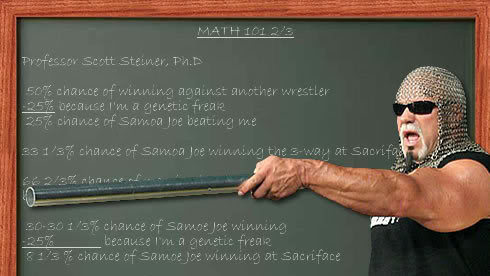 MATH 101 2/3
Professor Scott Steiner, Ph.D
50% chance of winning against another wrestler
-25% because I'm a genetic freak
25% chance of Samoa Joe beating me
33 1/3% chance of Samoa Joe winning the 3-way at Sacrifa
66 2/3% chance of
30-30 1/3% chance of Samoe Joe winning
-25% because I'm a genetic freak
8 1/3 % chance of Samoa Joe winning at Sacriface